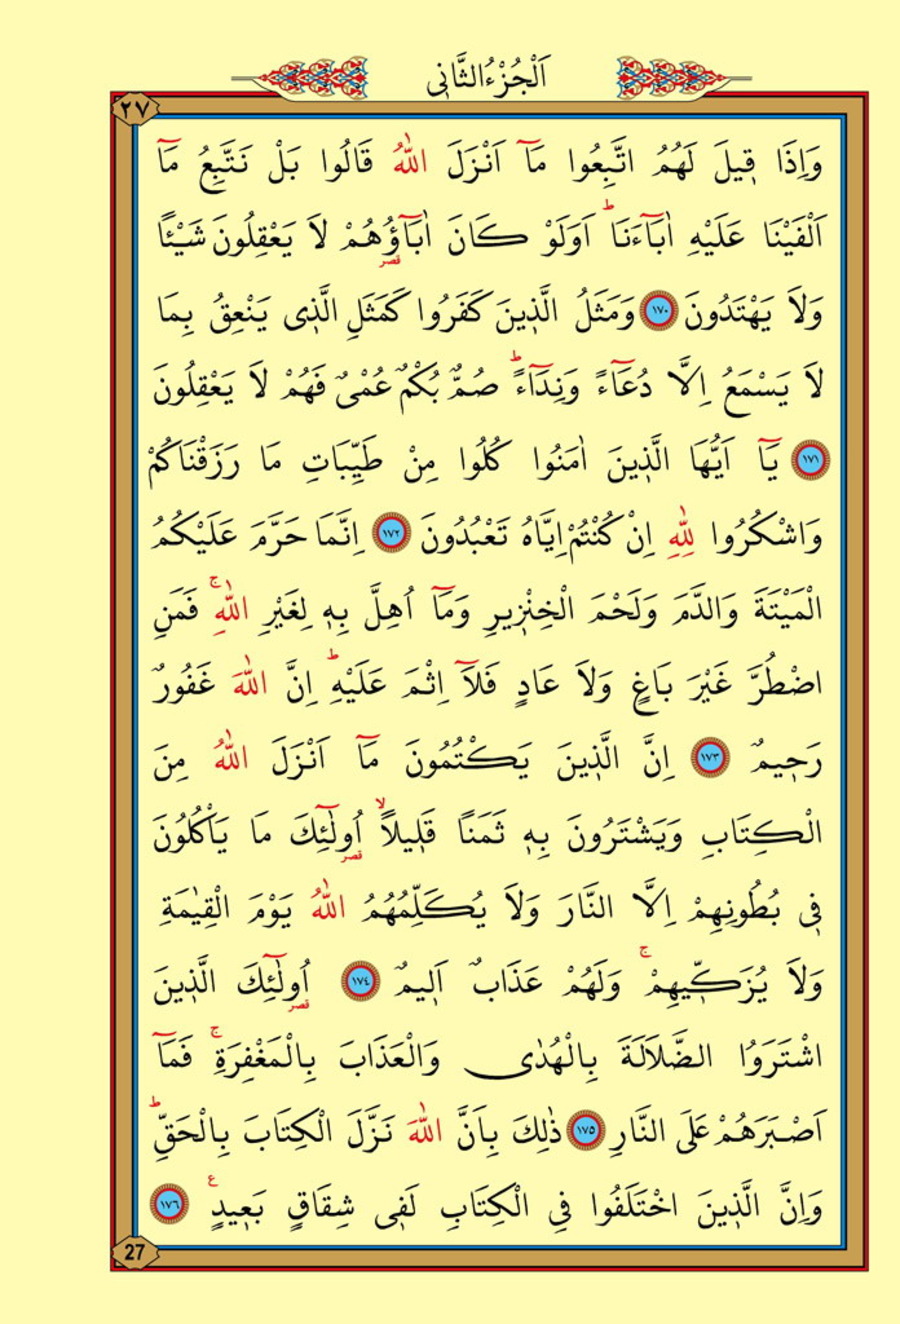 اَلْجُزْءُ الثَّانٖى
٢٧
وَاِذَا قٖيلَ لَهُمُ اتَّبِعُوا مَٓا اَنْزَلَ اللّٰهُ قَالُوا بَلْ نَتَّبِعُ مَٓا
اَلْفَيْنَا عَلَيْهِ اٰبَٓاءَنَا ط اَوَلَوْ كَانَ اٰبَٓاؤُ۬هُمْ لَا يَعْقِلُونَ شَيْـًٔا
قصر
وَلَا يَهْتَدُونَ ١٧٠ وَمَثَلُ الَّذٖينَ كَفَرُوا كَمَثَلِ الَّذٖى يَنْعِقُ بِمَا
لَا يَسْمَعُ اِلَّا دُعَٓاءً وَنِدَٓاءً ط صُمٌّ بُكْمٌ عُمْىٌ فَهُمْ لَا يَعْقِلُونَ
١٧١ يَٓا اَيُّهَا الَّذٖينَ اٰمَنُوا كُلُوا مِنْ طَيِّبَاتِ مَا رَزَقْنَاكُمْ
وَاشْكُرُوا لِلّٰهِ اِنْ كُنْتُمْ اِيَّاهُ تَعْبُدُونَ ١٧٢ اِنَّمَا حَرَّمَ عَلَيْكُمُ
الْمَيْتَةَ وَالدَّمَ وَلَحْمَ الْخِنْزٖيرِ وَمَٓا اُهِلَّ بِهٖ لِغَيْرِ اللّٰهِ ج فَمَنِ
اضْطُرَّ غَيْرَ بَاغٍ وَلَا عَادٍ فَلَٓا اِثْمَ عَلَيْهِ ط اِنَّ اللّٰهَ غَفُورٌ
رَحٖيمٌ ١٧٣ اِنَّ الَّذٖينَ يَكْتُمُونَ مَٓا اَنْزَلَ اللّٰهُ مِنَ
الْكِتَابِ وَيَشْتَرُونَ بِهٖ ثَمَنًا قَلٖيلًا لا اُولٰٓئِكَ مَا يَاْكُلُونَ
قصر
فٖى بُطُونِهِمْ اِلَّا النَّارَ وَلَا يُكَلِّمُهُمُ اللّٰهُ يَوْمَ الْقِيٰمَةِ
وَلَا يُزَكّٖيهِمْ ج وَلَهُمْ عَذَابٌ اَلٖيمٌ ١٧٤ اُولٰٓئِكَ الَّذٖينَ
قصر
اشْتَرَوُا الضَّلَالَةَ بِالْهُدٰى وَالْعَذَابَ بِالْمَغْفِرَةِ ج فَمَٓا
اَصْبَرَهُمْ عَلَى النَّارِ ١٧٥ ذٰلِكَ بِاَنَّ اللّٰهَ نَزَّلَ الْكِتَابَ بِالْحَقِّ ط
وَاِنَّ الَّذٖينَ اخْتَلَفُوا فِى الْكِتَابِ لَفٖى شِقَاقٍ بَعٖيدٍ ع ١٧٦
27